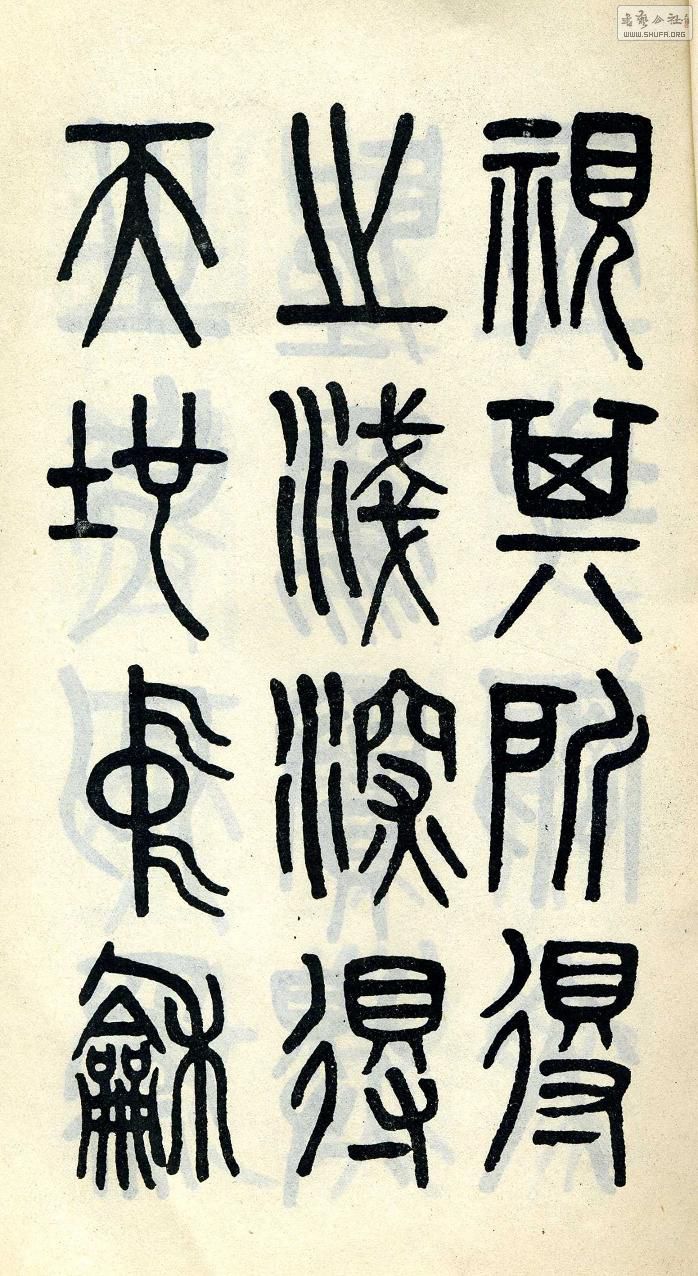 視其所得
之淺深得
天地中龢
書藝公社
WWW.SHUFA.ORG